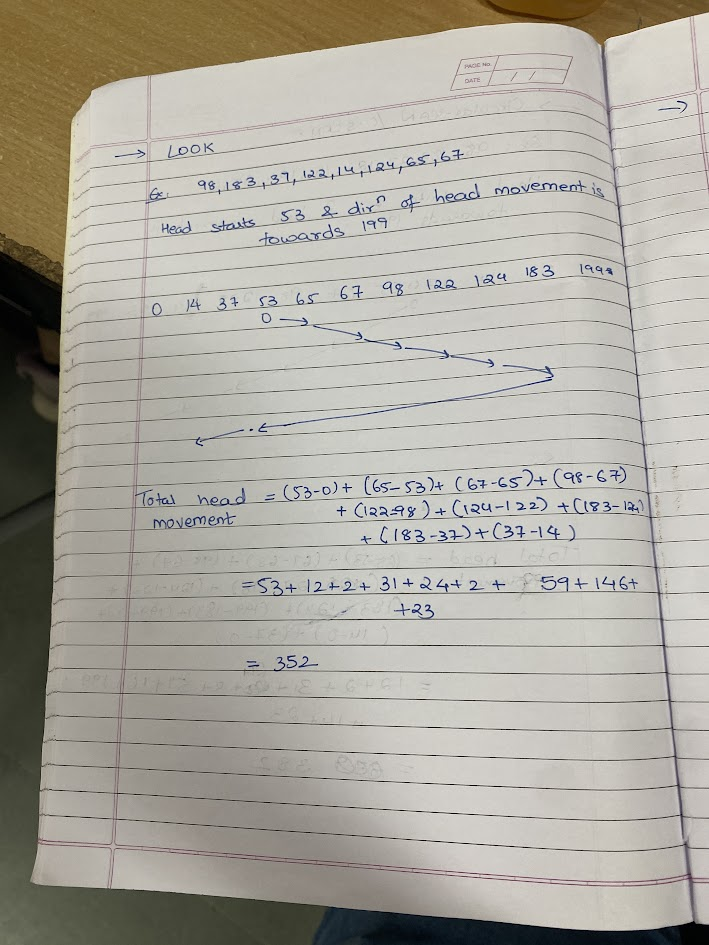 PAGE No.
DATE / /
→ LOOK
Ex. 98, 183, 37, 122, 14, 124, 65, 67
Head starts 53 & dirⁿ of head movement is
towards 199
0 14 37 53 65 67 98 122 124 183 199
0
Total head = (53-0) + (65-53) + (67-65) + (98-67)
movement + (122-98) + (124-122) + (183-124)
+ (183-37) + (37-14)
= 53 + 12 + 2 + 31 + 24 + 2 + 59 + 146 +
+23
= 352